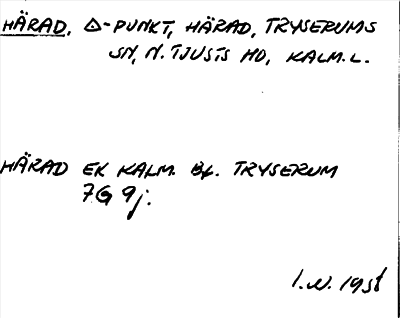 HÄRAD, △-PUNKT, HÄRAD, TRYSERUMS
SN, N. TJUSTS HD, KALM. L.
HÄRAD EK KALM. Bl. TRYSERUM
7G 9j.
1951